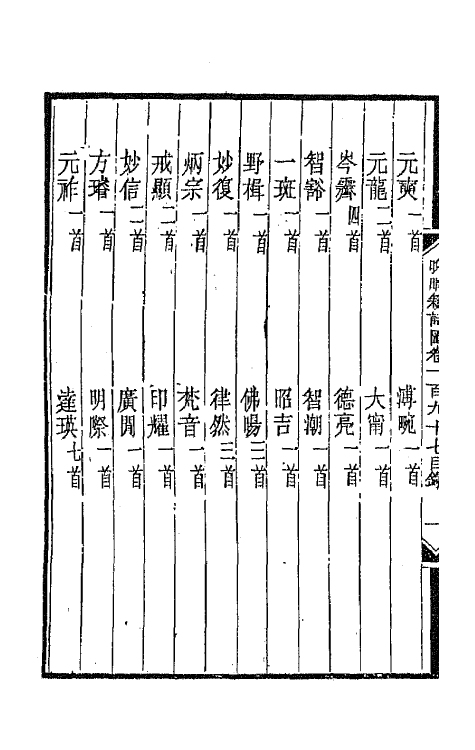 元奭一首　溥畹一首
元龍二首　大甯一首
岑霽四首　德亮一首
智豁一首　智潮一首
一斑一首　昭吉一首
野楫一首　佛暘三首
妙復一首　律然三首
炳宗一首　梵音一首
戒顯二首　印耀一首
妙信二首　廣聞一首
方璿一首　明際一首
元祚一首　達瑛七首
晚晴簃詩匯卷一百九十七目錄　一